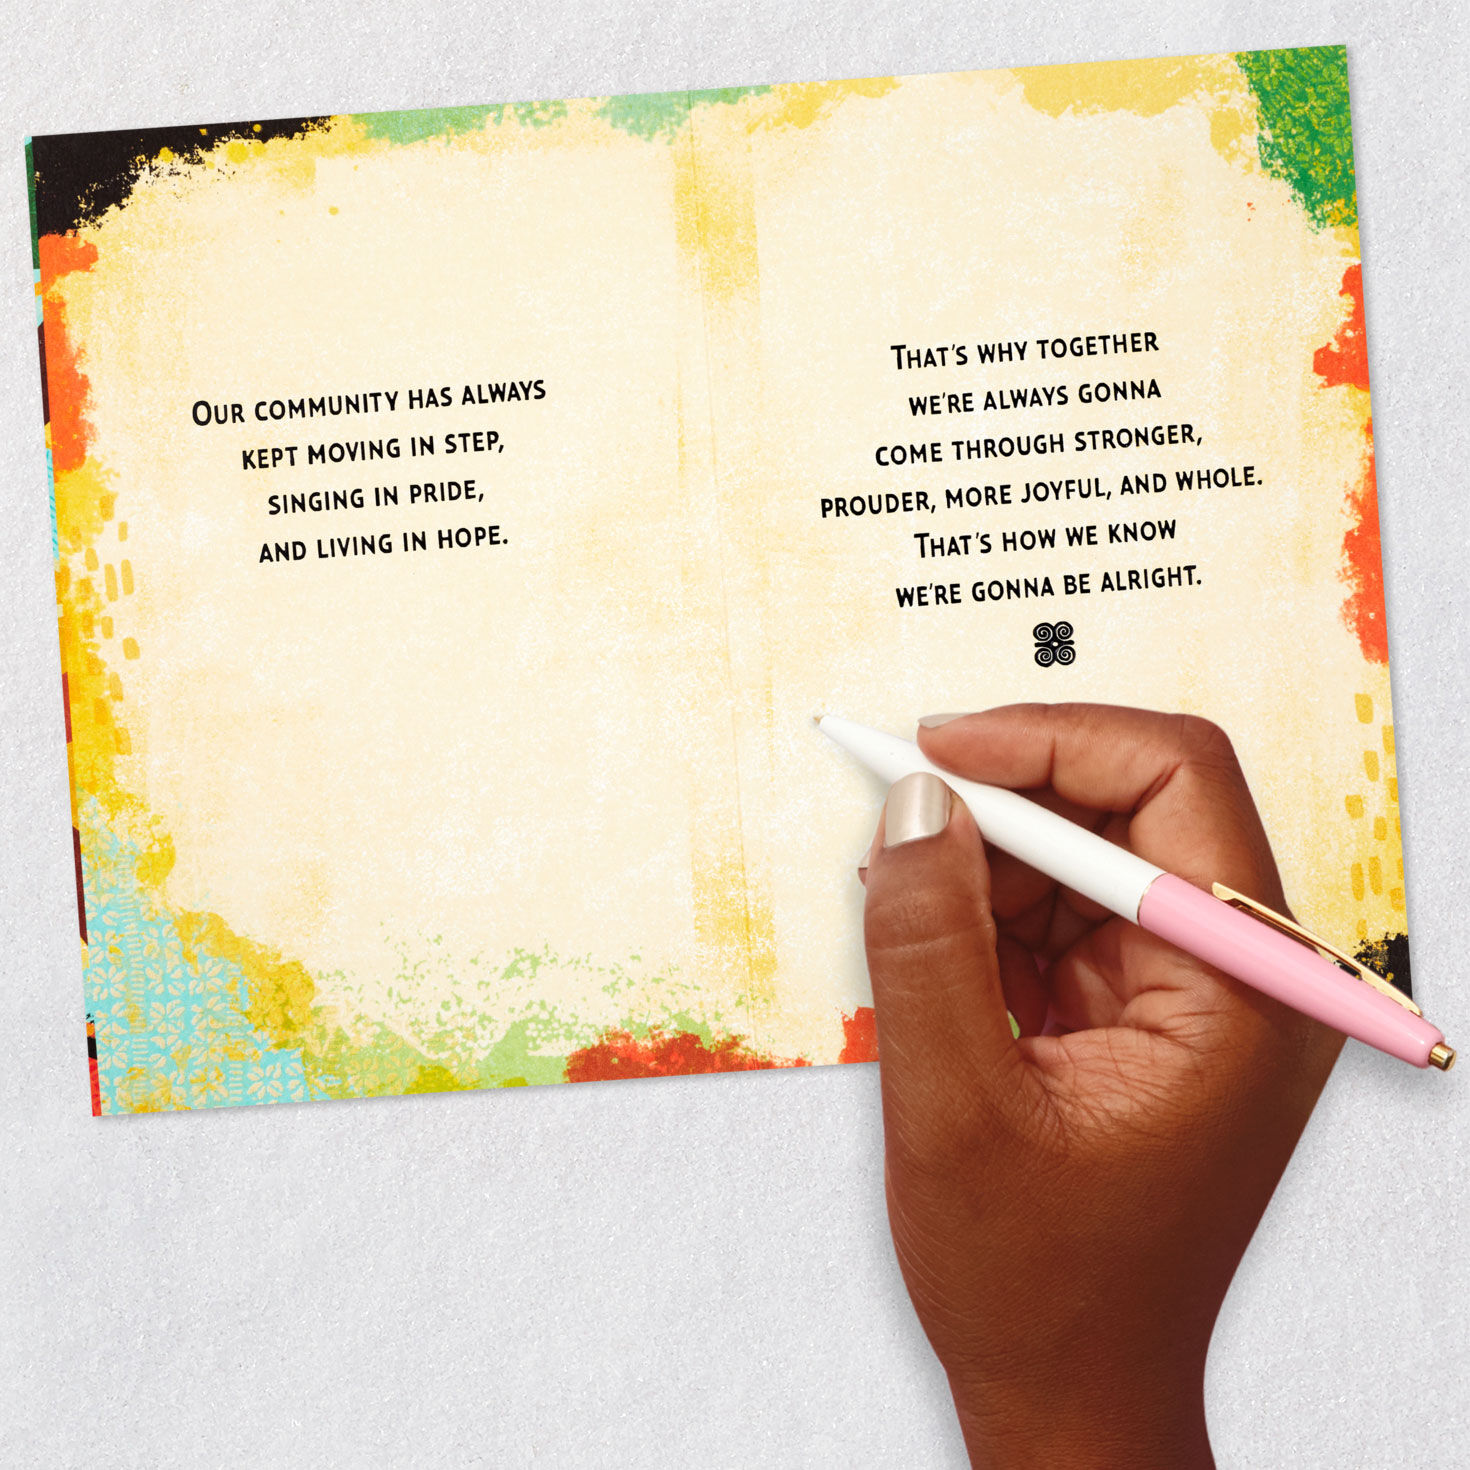 Our community has always
kept moving in step,
singing in pride,
and living in hope.
That's why together
we're always gonna
come through stronger,
prouder, more joyful, and whole.
That's how we know
we're gonna be alright.